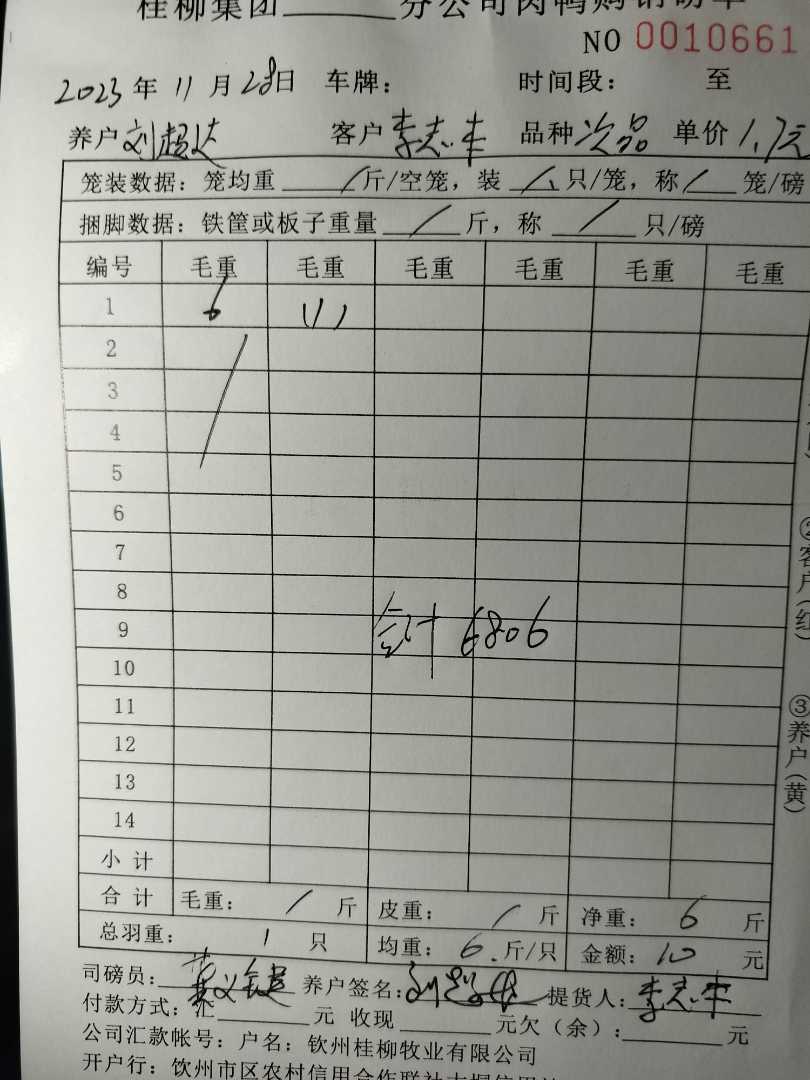 桂柳集团______分公司肉鸭购销磅单
NO 0010661
2023年11月28日 车牌: 时间段: 至
养户刘超达 客户李志丰 品种次品 单价1.7元
笼装数据: 笼均重 /斤/空笼, 装 / 只/笼, 称/ 笼/磅
捆脚数据: 铁筐或板子重量 / 斤, 称 / 只/磅
编号 毛重 毛重 毛重 毛重 毛重 毛重
1 6 (1)
2
3
4
5
6
7
8
9 合计 6806
10
11
12
13
14
小计
合计 毛重: / 斤 皮重: / 斤 净重: 6 斤
总羽重: 1 只 均重: 6.斤/只 金额: 10 元
司磅员: 养户签名: 提货人:李志丰
付款方式: 汇______元 收现______元欠(余):______元
公司汇款帐号: 户名: 钦州桂柳牧业有限公司
开户行: 钦州市区农村信用合作联社
客户(红)
③养户(黄)